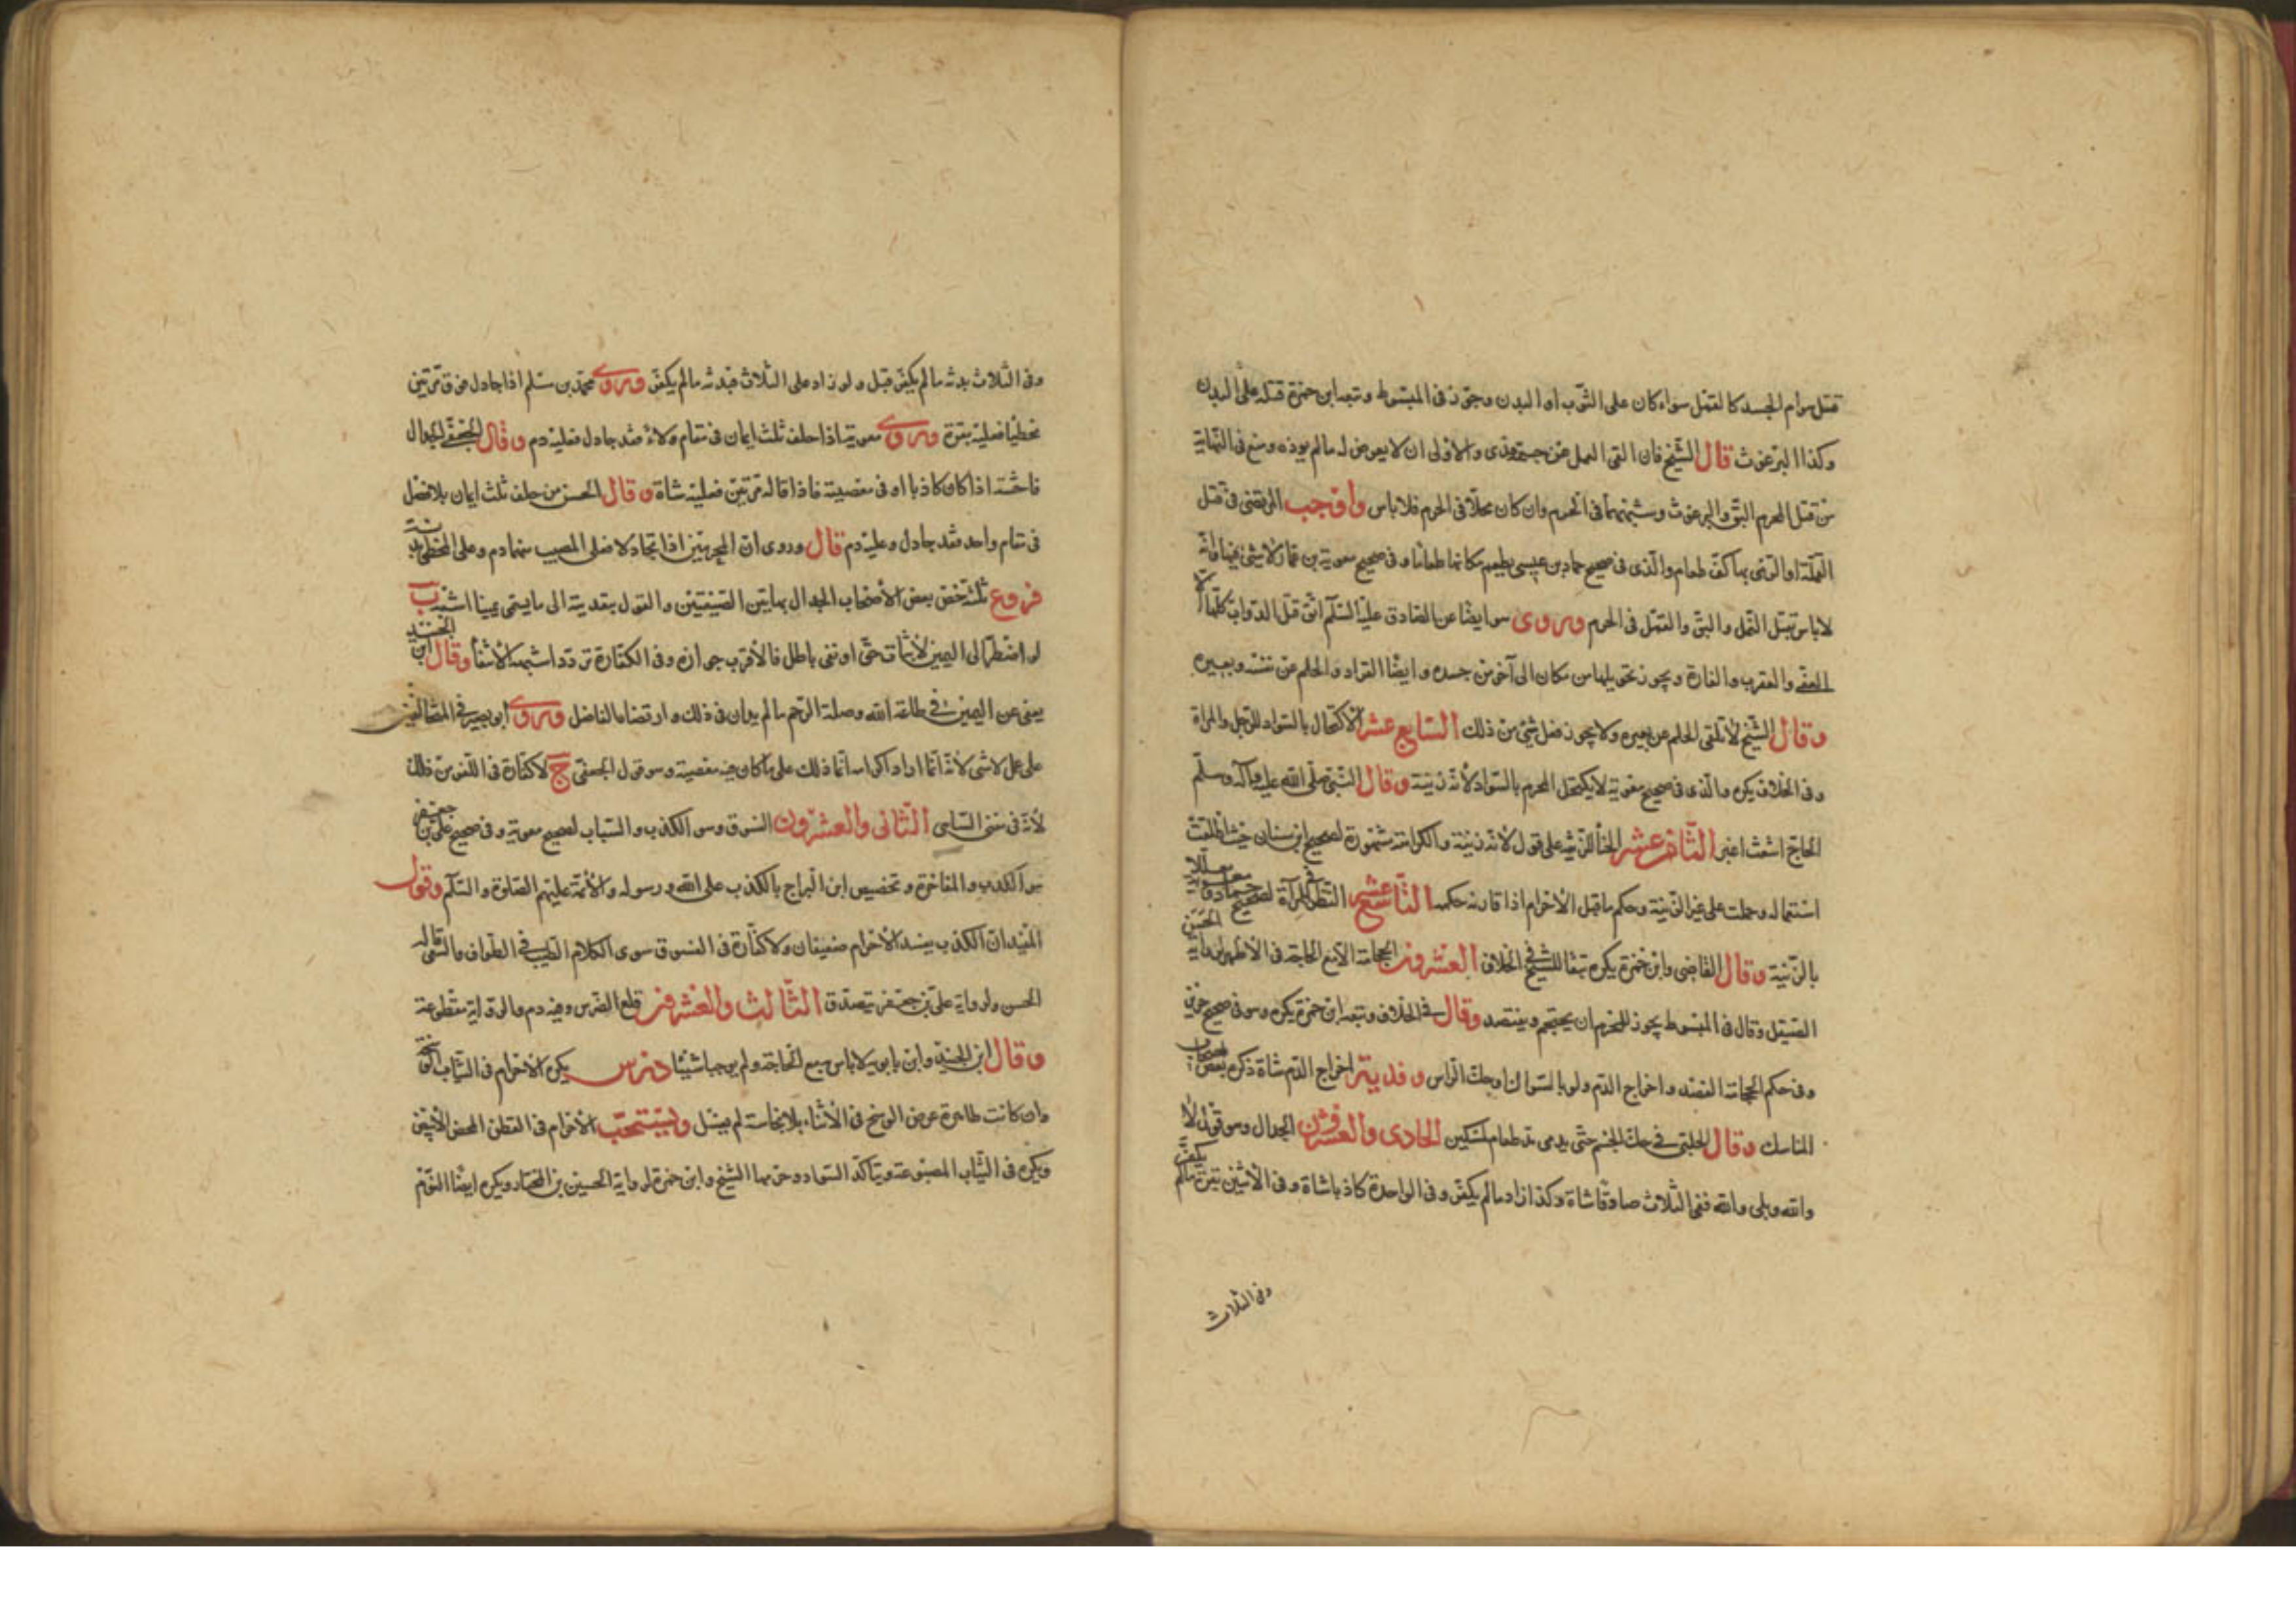 قتل هوام الجسد كالقمل سواء كان على الثوب او البدن وجوّز فى المبسوط وتبعه ابن حمزة قتله على البدن
وكذا البرغوث قال الشيخ فان القى القمل عن جسمه فدى والاولى ان لا يعرض له مالم يوذه ومنع فى النهاية
من قتل المحرم البقّ والبرغوث وشبههما فى الحرم وان كان محلّا فى الحرم فلا باس واوجب المرتضى فى قتل
القملة او الرمى بها كفّ طعام والّذى فى صحيح حماد بن عيسى يطعم مكانها طعاما وفى صحيح معوية بن عمار لا شىء فيها
لا باس بقتل النمل والبقّ والقمل فى الحرم وروى ايضا عن الصادق عليه السّلم اتق قتل الدوابّ كلّها الا
الافعى والعقرب والفارة ويجوز تحويلها من مكان الى آخر من جسده وايضا القراد والحلم عن نفسه وبعيره
وقال الشيخ لا يلقى الحلم عن بعيره ولا يجوز فعل شىء من ذلك السّابع عشر الاكتحال بالسّواد للرّجل والمراة
وفى الخلاف يكره والّذى فى صحيح معوية لا يكتحل المحرم بالسّواد لانّه زينة وقال النّبى صلّى الله عليه وآله وسلّم
الحاجّ اشعث اغبر الثّامن عشر الحنّاء للزينة على قول لانّه زينة والكراهة مشهورة لصحيح ابن سنان حيث اطلقت
استعماله وحملت على غير الزينة وحكم ما قبل الاحرام اذا قارنه حكمه التّاسع عشر النّظر فى المرآة لصحيح حماد معلّلا
بالزّينة وقال القاضى وابن حمزة يكره تبعا للشيخ فى الخلاف العشرون الحجامة الا مع الحاجة فى الاظهر لرواية الحسن
الصّيقل وقال فى المبسوط يجوز للمحرم ان يحتجم ويفتصد وقال فى الخلاف وتبعه ابن حمزة يكره وهو فى صحيح حريز
وفى حكم الحجامة الفصد واخراج الدّم ولو بالسّواك او حكّ الراس وفدية اخراج الدّم شاة ذكره بعض اصحاب
المناسك وقال الحلبى فى حكّ الجسم حتّى يدمى مد طعام لمسكين الحادى والعشرون الجدال وهو قول لا
والله وبلى والله ففى الثّلاث صادقا شاة وكذا زاد مالم يكفّر وفى الواحدة كاذبا شاة وفى الاثنين بقرة مالم يكفّر
وفى الثلاث
وفى الثلاث بدنة مالم يكفّر قبل ولو زاد على الثلاث فبدنة مالم يكفّر وروى محمّد بن مسلم اذا جادل فوق مرّتين
مخطيا فعليه بقرة وروى معوية اذا حلف ثلث ايمان فى مقام ولاء فقد جادل فعليه دم وقال الجعفى الجدال
فاحشة اذا كان كاذبا او فى معصية فاذا قاله مرّتين فعليه شاة وقال الحسن من حلف ثلث ايمان بلا فصل
فى مقام واحد فقد جادل وعليه دم قال وروى انّ المحرمين اذا تجادلا فعلى المصيب منهما دم وعلى المخطى بدنة
فروع ثلثة خصّ بعض الاصحاب الجدال بهاتين الصّيغتين والقول بتعديته الى ما يسمّى يمينا اشبه ب
لو اضطرّ الى اليمين لاثبات حقّ او نفى باطل فالاقرب جوازه وفى الكفّارة تردّد اشبهه الانتفاء وقال ابن الجنيد
يعفى عن اليمين فى طاعة الله وصلة الرّحم مالم يداب فى ذلك وارتضاه الفاضل وروى ابو بصير فى المتحالفين
على عمل لا شىء لانّه انّما اراد اكرامه انّما ذلك على ما كان فيه معصية وهو قول الجعفى ج لا كفّارة فى اللّغو من ذلك
لانّه فى معنى السّاهى الثّانى والعشرون الفسوق وهو الكذب والسّباب لصحيح معوية وفى صحيح علىّ بن جعفر
هو الكذب والمفاخرة وتخصيص ابن البراج بالكذب على الله ورسوله والائمّة عليهم الصّلوة والسّلم وقول
المفيد انّ الكذب يفسد الاحرام ضعيفان ولا كفّارة فى الفسوق سوى الكلام الطيب فى الطّواف والسّعى قاله
الحسن ولرواية علىّ بن جعفر يتصدّق الثّالث والعشرون قلع الضرس وفيه دم والرّواية مقطوعة
وقال ابن الجنيد وابن بابويه لا باس به مع الحاجة ولم يوجبا شيئا درس يكره الاحرام فى الثياب الوسخة
وان كانت طاهرة عرض الوسخ فى الاثناء بلا نجاسة لم يغسل ويستحبّ الاحرام فى القطن المحض الابيض
ويكره فى الثّياب المصبوغة ويتاكّد السّواد وحرّمها الشيخ وابن حمزة لرواية الحسين بن المختار ويكره ايضا النّوم